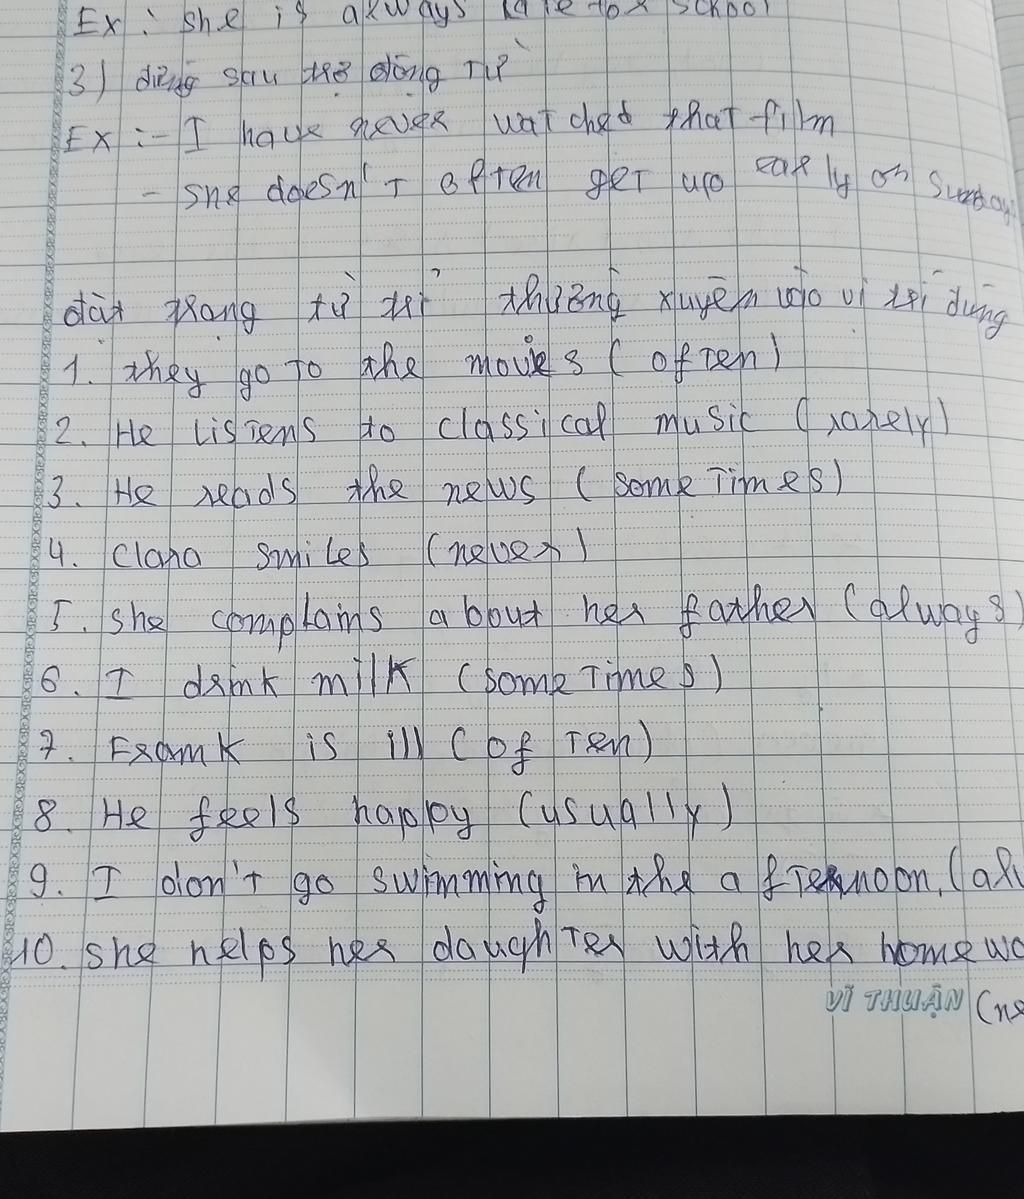 Ex : she is always late for school
3) đứng sau trợ động từ
Ex :- I have never watched that film
- she doesn't often get up early on Sunday
đặt trạng từ chỉ thường xuyên vào vị trí đúng
1. they go to the movies (often)
2. He listens to classical music (rarely)
3. He reads the news (sometimes)
4. Clara smiles (never)
5. she complains about her father (always)
6. I drink milk (sometimes)
7. Frank is ill (often)
8. He feels happy (usually)
9. I don't go swimming in the afternoon. (al
10. she helps her daughter with her homewo
VĨ THUẬN (ne